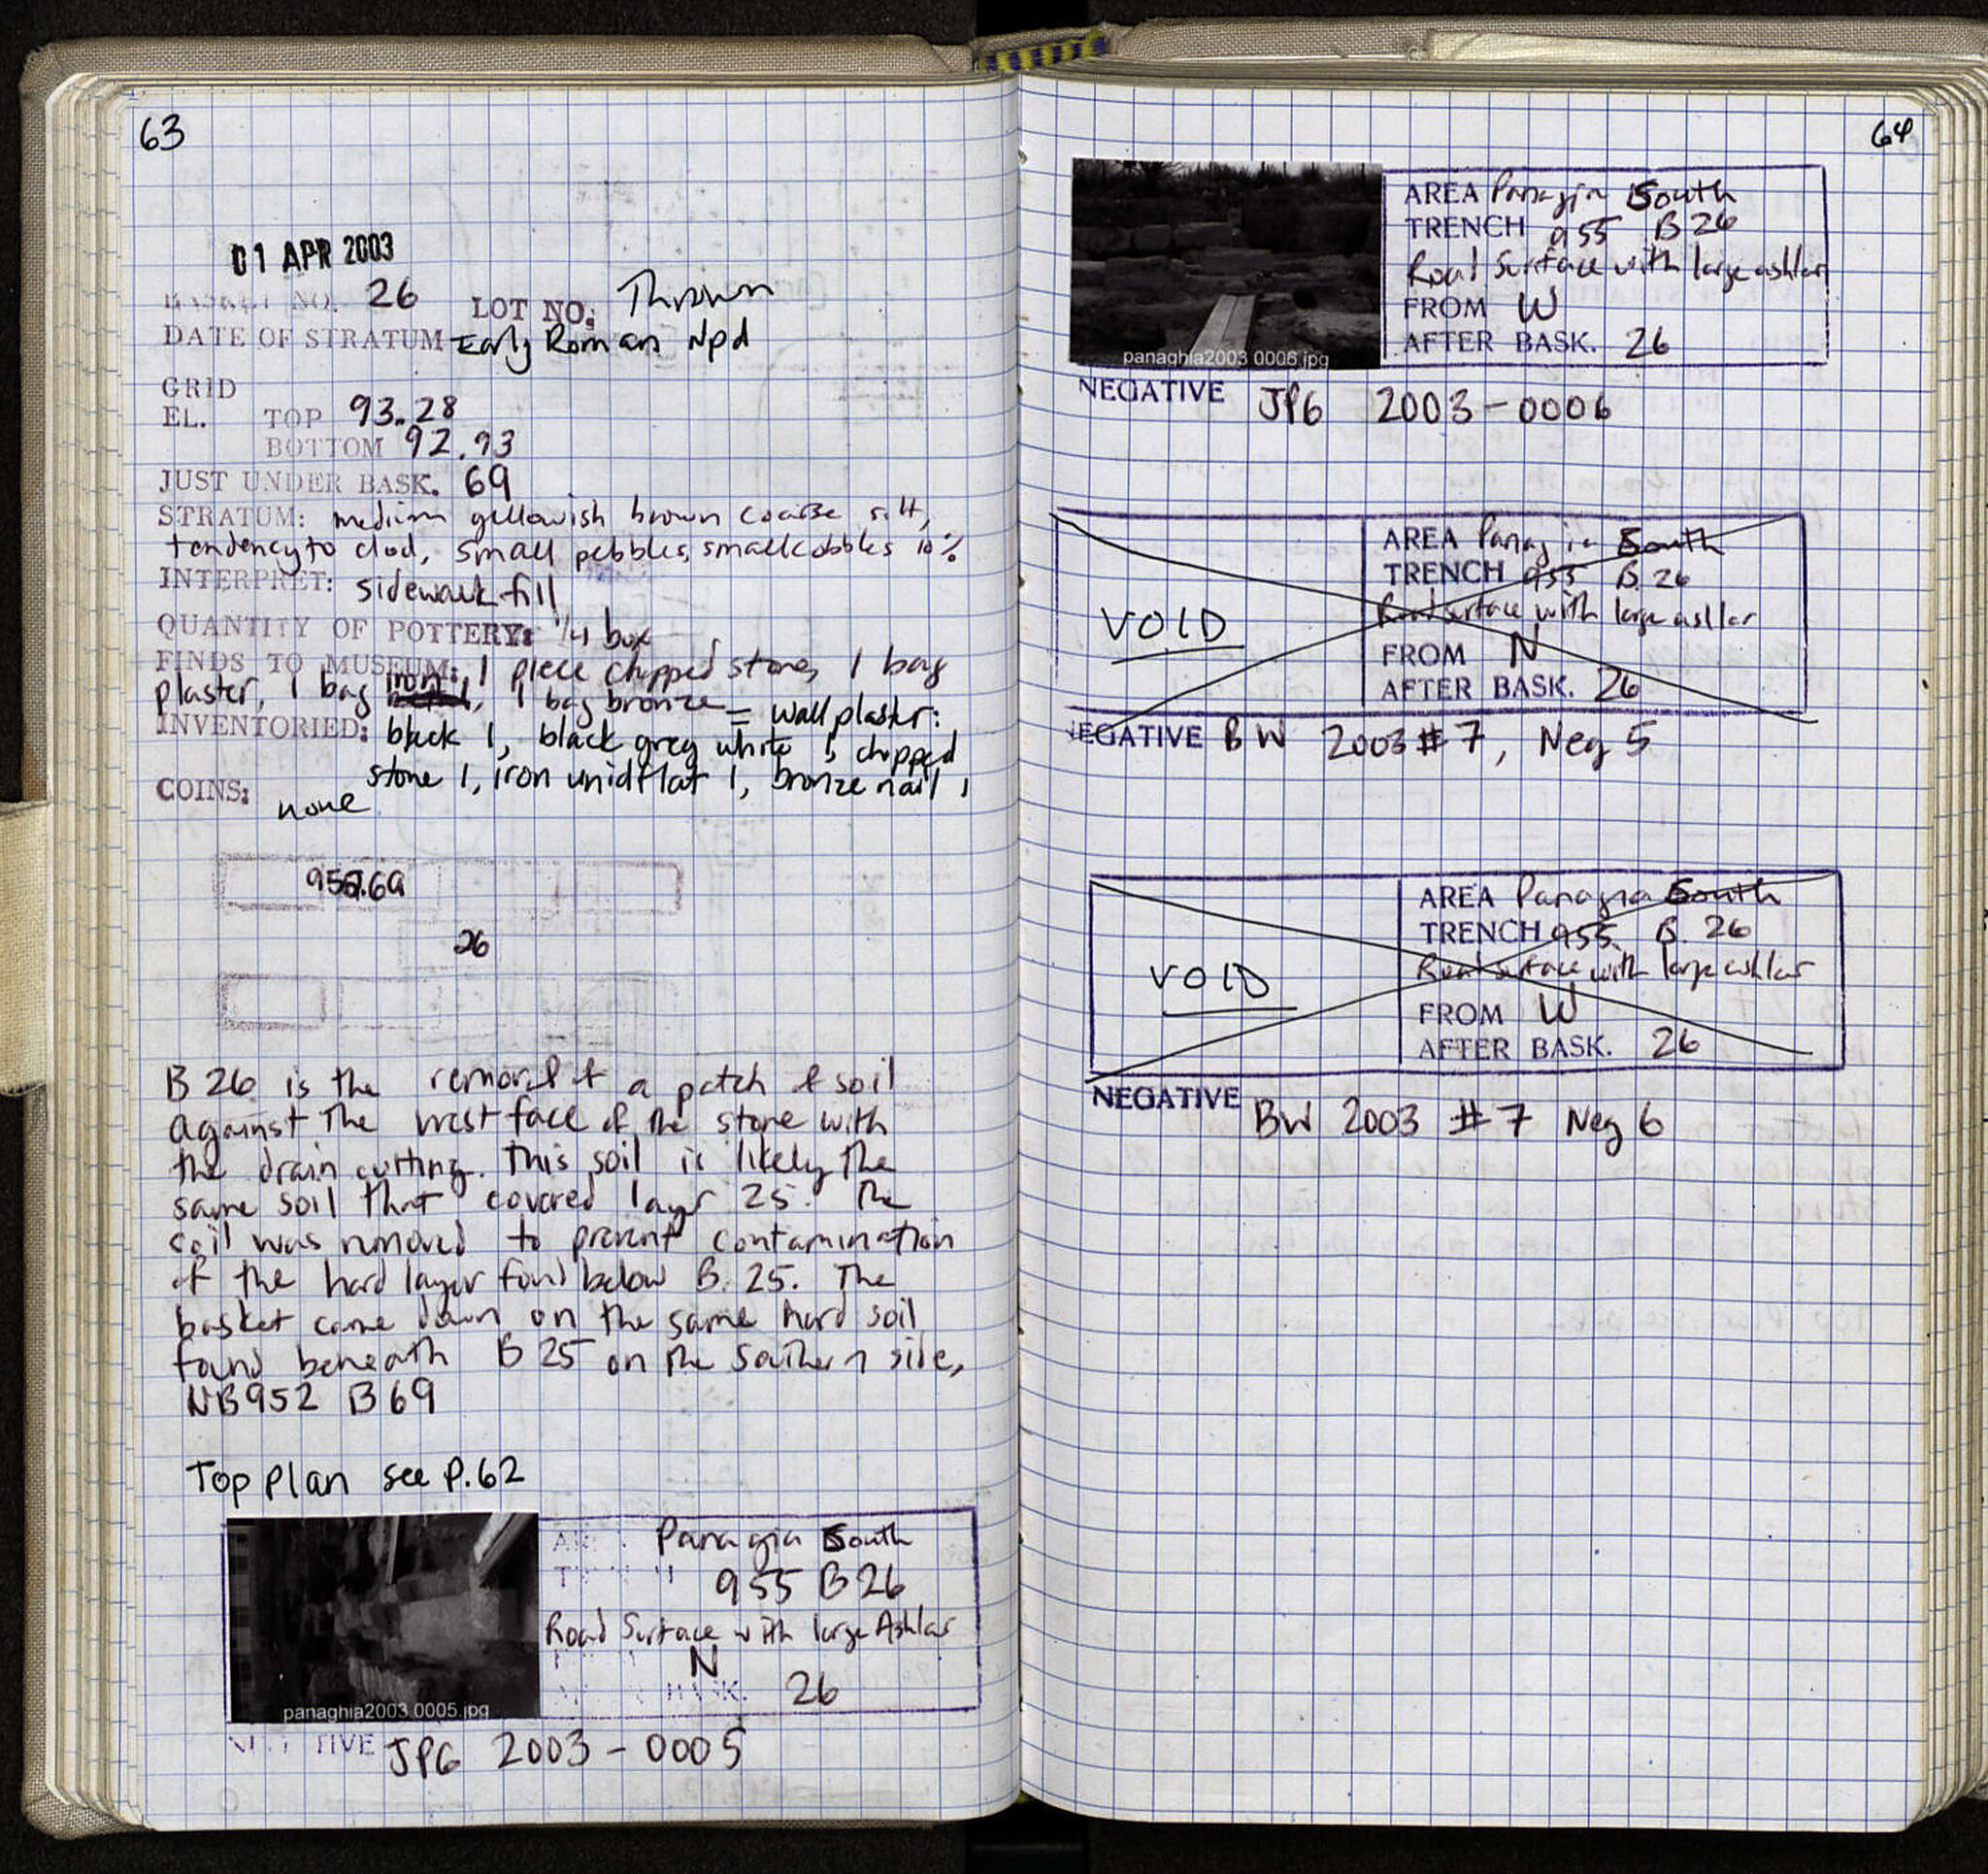 63
01 APR 2003
BASKET NO. 26 LOT NO: Thrown
DATE OF STRATUM Early Roman Npd
GRID
EL. TOP 93.28
BOTTOM 92.93
JUST UNDER BASK. 69
STRATUM: medium yellowish brown coarse silt,
tendency to clod, small pebbles, small cobbles 10%
INTERPRET: sidewalk fill
QUANTITY OF POTTERY: 1/4 box
FINDS TO MUSEUM: 1 piece chipped stone, 1 bag
plaster, 1 bag iron, 1 bag bronze = wall plaster:
INVENTORIED: black 1, black grey white 5 chipped
stone 1, iron unid flat 1, bronze nail 1
COINS: none
26
B 26 is the removal of a patch of soil
against the west face of the stone with
the drain cutting. This soil is likely the
same soil that covered layer 25. The
soil was removed to prevent contamination
of the hard layer found below B. 25. The
basket came down on the same hard soil
found beneath B 25 on the southern side,
NB952 B69
Top Plan see P.62
AREA Panagia South
TRENCH 955 B26
Road Surface with large Ashlar
N
BASK. 26
panaghia2003 0005.jpg
NEGATIVE JPG 2003-0005
64
AREA Panagia South
TRENCH 955 B26
Road Surface with large ashlar
FROM W
AFTER BASK. 26
panaghia2003 0006.jpg
NEGATIVE JPG 2003-0006
VOID
AREA Panagia South
TRENCH 955 B. 26
Road surface with large ashlar
FROM N
AFTER BASK. 26
NEGATIVE BW 2003 #7, Neg 5
VOID
AREA Panagia South
TRENCH 955 B. 26
Road surface with large ashlar
FROM W
AFTER BASK. 26
NEGATIVE BW 2003 #7 Neg 6